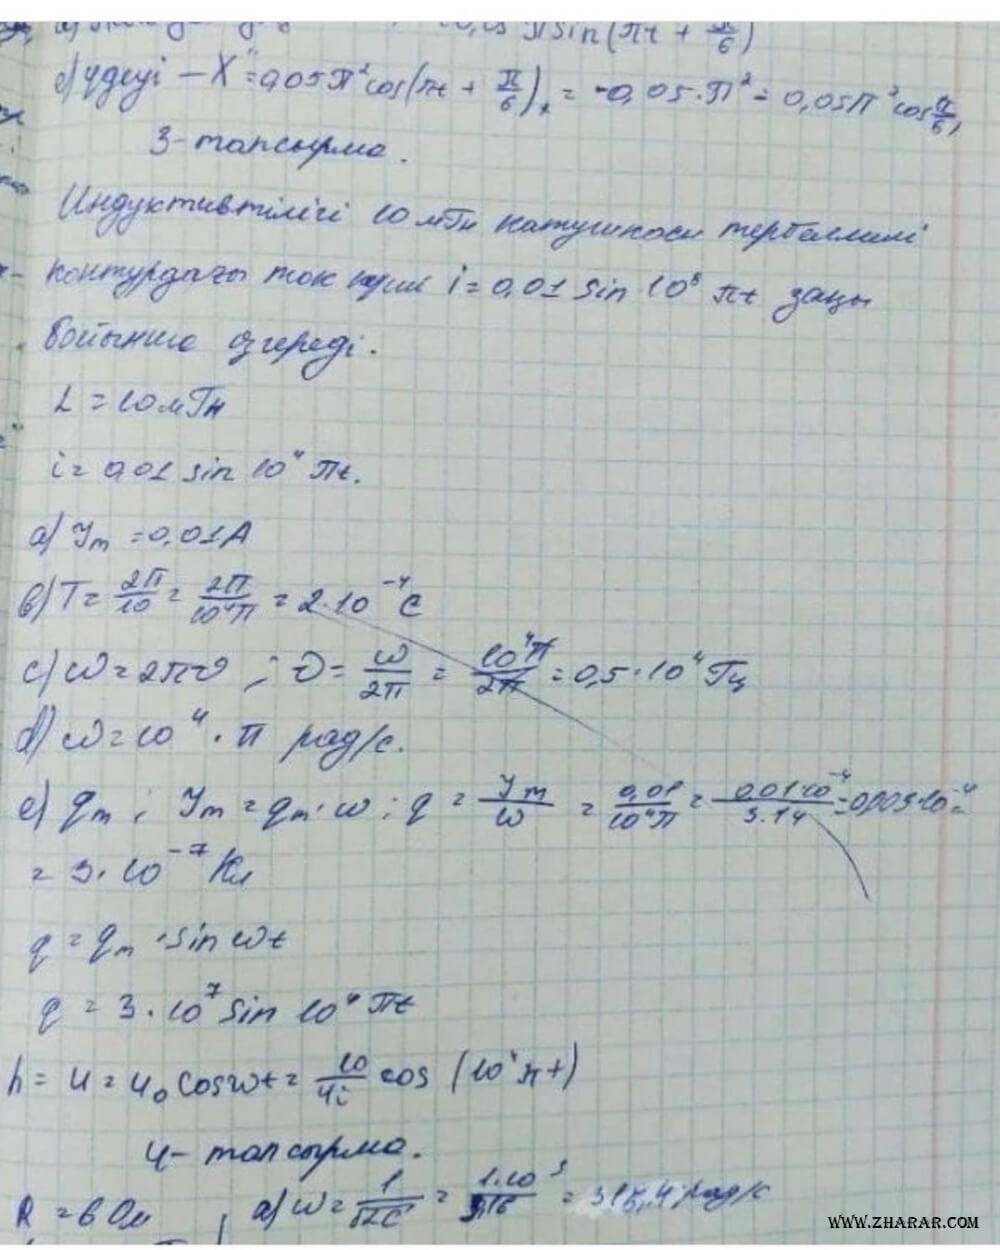 0,05 π sin(πt + π/6)
e) үдеуі – X" = 0,05π² cos(πt + π/6), = -0,05·π² = 0,05π² cos π/6,
3-тапсырма.
Индуктивтілігі 10 мГн катушкасы тербелмелі
контурдағы ток күші i = 0,01 sin 10⁸ πt заңы
бойынша өзгереді.
L = 10 мГн
i = 0,01 sin 10⁴ πt.
a) Jm = 0,01 A
в) T = 2π/10 = 2π/10⁴π = 2·10⁻⁴ c
c) ω = 2πν ; ν = ω/2π = 10⁴π/2π = 0,5·10⁴ Гц
d) ω = 10⁴ · π рад/с.
e) qm ; Jm = qm·ω ; q = Jm/ω = 0,01/10⁴π = 0,01·10⁻⁴/3.14 = 0,003·10⁻⁴ =
= 3·10⁻⁷ Кл
q = qm · sin ωt
q = 3·10⁷ sin 10⁴ πt
h = u = u₀ cos ωt = 10/4i cos (10⁴ πt)
4-тапсырма.
R = 6 Ом , a) ω = 1/√LC = =  рад/с
WWW.ZHARAR.COM